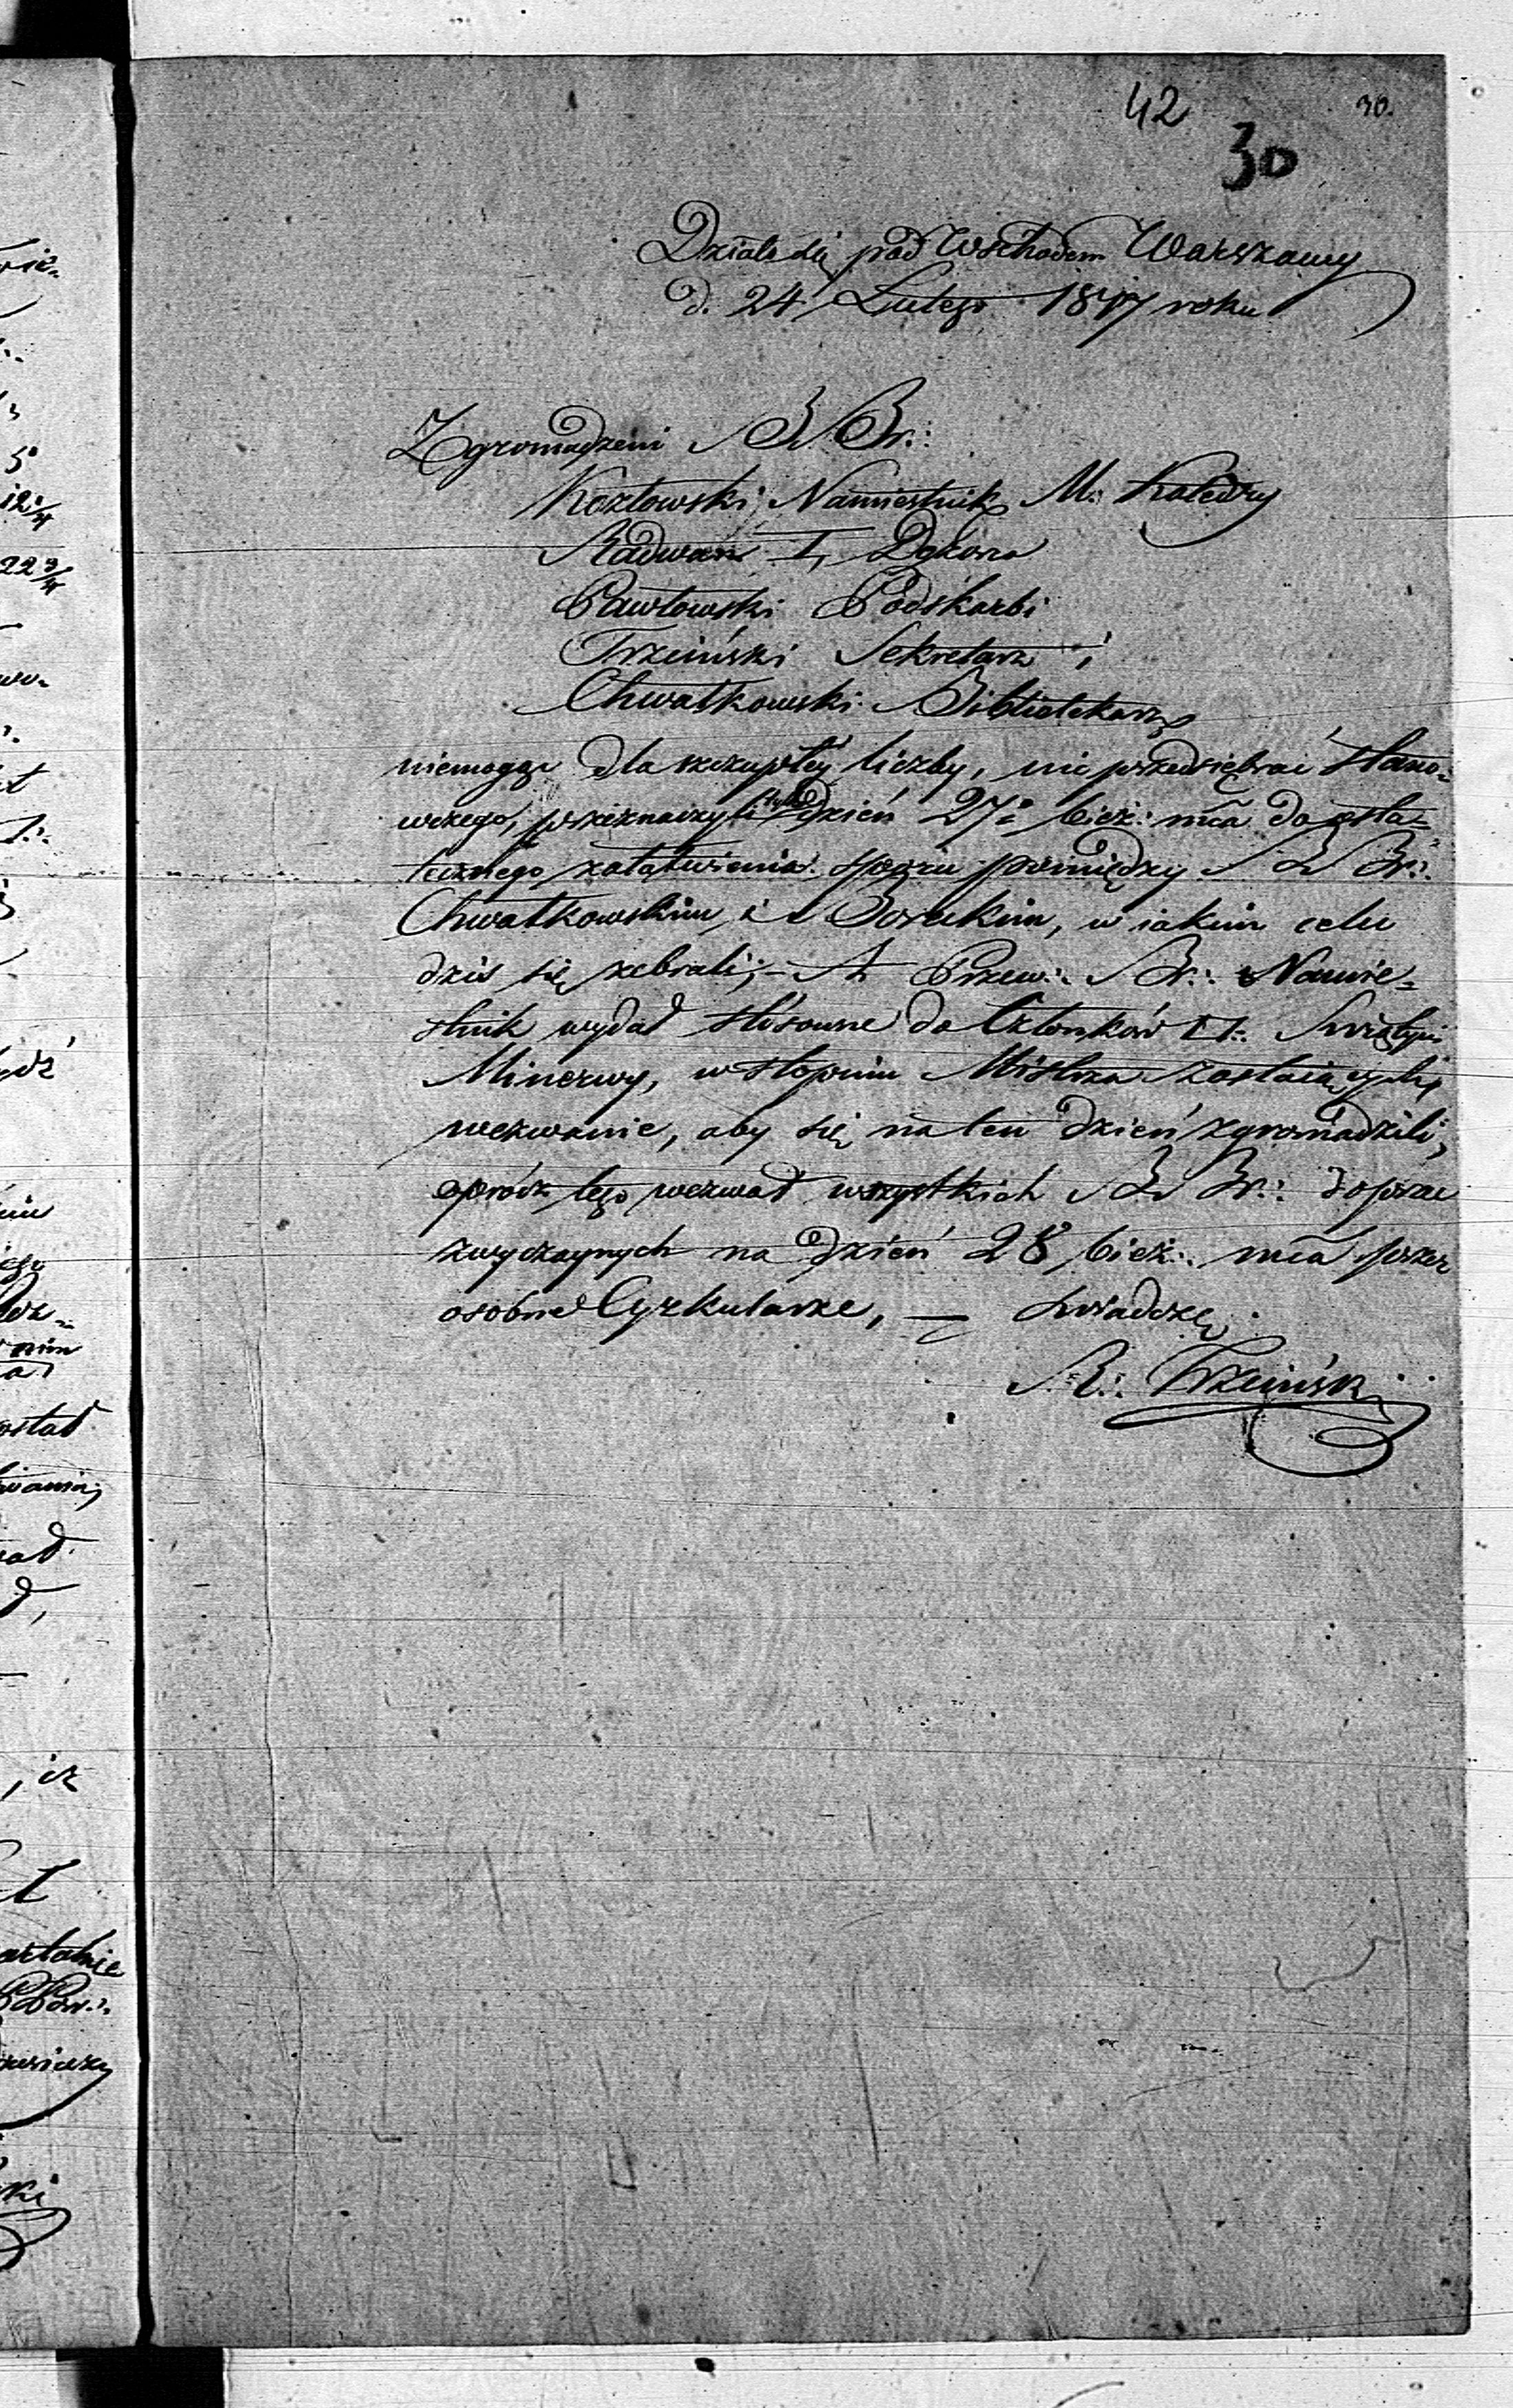 42 30.
30
Działo się pod Wschodem Warszawy
d. 24 Lutego 1817 roku
Zgromadzeni BBr.:
Kozłowski Namiestnik M: Katedry
Radwan I, Dozorca
Pawłowski Podskarbi
Trzciński Sekretarz i
Chwałkowski Bibliotekarz
niemogąc dla szczupłey liczby, nic przedsiębrać stano-
wczego, przeznaczyli tylko dzień 27º bież: mca do osta-
tecznego załatwienia sporu pomiędzy BBr:
Chwałkowskim, i, w iakim celu
dziś się zebrali; – A Przew:. Br:. Namie-
stnik wydał stósowne do Członków Świątyni
Minerwy, w stopniu Mistrza zostaiących,
wezwanie, aby się na ten dzień zgromadzili,
oprócz tego wezwał wszystkich BBr:. do prac
zwyczaynych na dzień 28 bież:. mca przez
osobne Cyrkularze, — świadczę
Trzciński